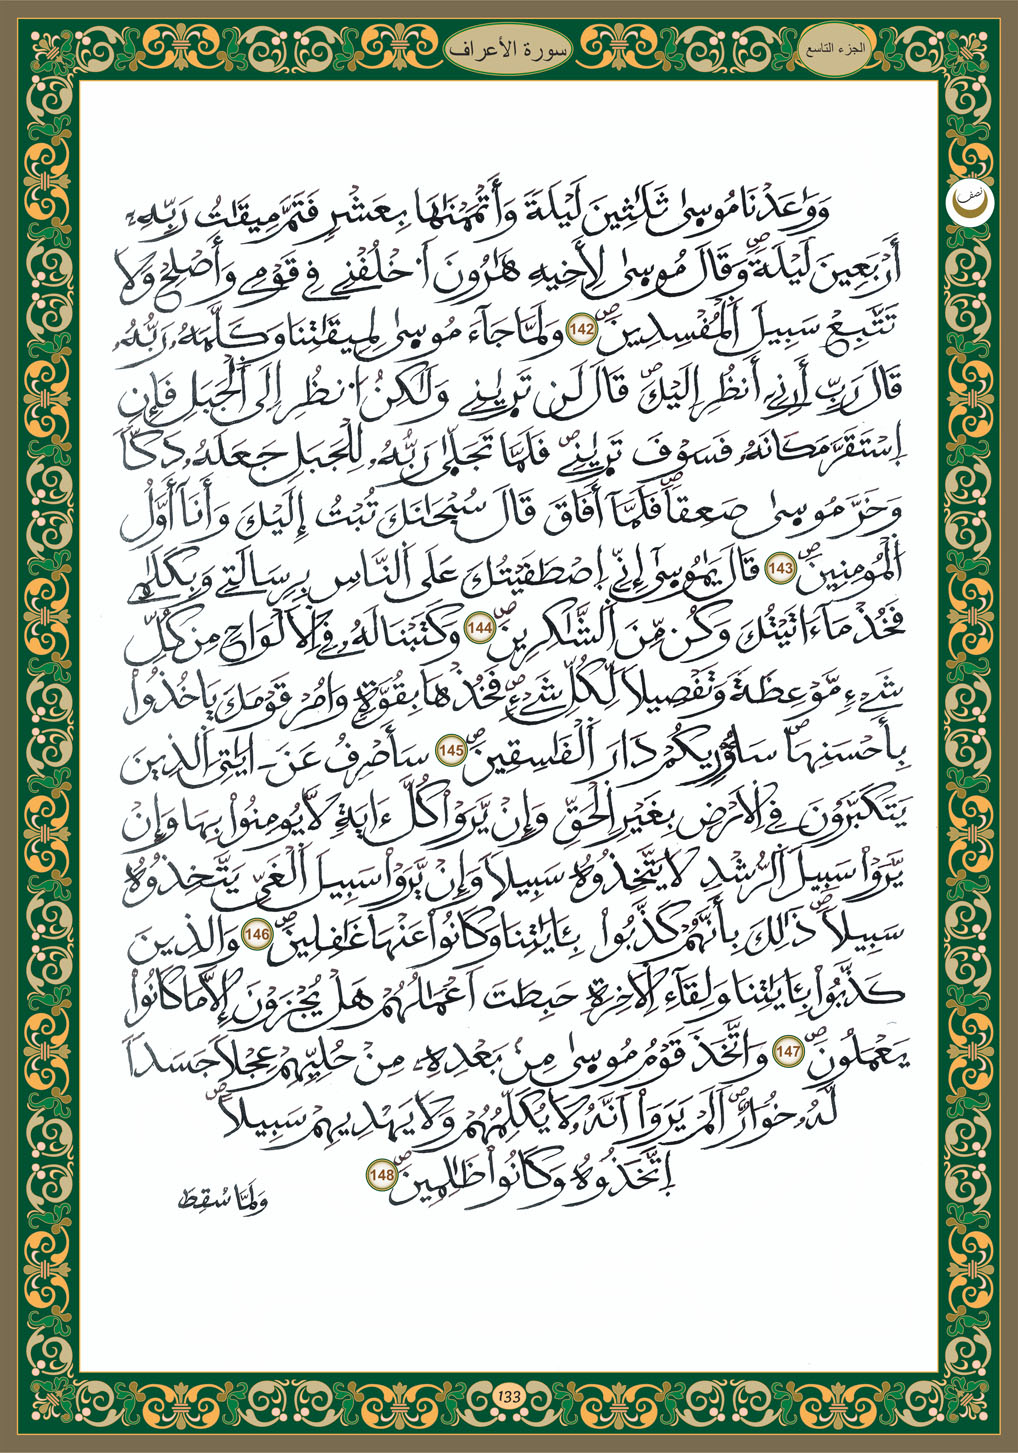 الجزء التاسع
سورة الأعراف
نصف
وَوَٰعَدْنَا مُوسِىٰ ثَلَٰثِينَ لَيْلَةً وَأَتْمَمْنَٰهَا بِعَشْرٍ فَتَمَّ مِيقَٰتُ رَبِّهِۦ
أَرْبَعِينَ لَيْلَةً صٜ وَقَالَ مُوسِىٰ لِأَخِيهِ هَٰرُونَ اَخْلُفْنِے فِے قَوْمِے وَأَصْلِحْ وَلَا
تَتَّبِعْ سَبِيلَ اَلْمُفْسِدِينَ صٜ 142 وَلَمَّا جَآءَ مُوسِىٰ لِمِيقَٰتِنَا وَكَلَّمَهُۥ رَبُّهُۥ
قَالَ رَبِّ أَرِنِےٓ أَنظُرِ اِلَيْكَ صٜ قَالَ لَن تَرِىٰنِے وَلَٰكِنُ اُنظُرِ اِلَى اَلْجَبَلِ فَإِنِ
اِسْتَقَرَّ مَكَانَهُۥ فَسَوْفَ تَرِىٰنِے صٜ فَلَمَّا تَجَلِّىٰ رَبُّهُۥ لِلْجَبَلِ جَعَلَهُۥ دَكّاً
وَخَرَّ مُوسِىٰ صَعِقاً صٜ فَلَمَّآ أَفَاقَ قَالَ سُبْحَٰنَكَ تُبْتُ إِلَيْكَ وَأَنَآ أَوَّلُ
اُلْمُومِنِينَ صٜ 143 قَالَ يَٰمُوسِىٰٓ إِنِّے اِصْطَفَيْتُكَ عَلَى اَلنَّاسِ بِرِسَالَتِے وَبِكَلَٰمِے
فَخُذْ مَآ ءَاتَيْتُكَ وَكُن مِّنَ اَلشَّٰكِرِينَ صٜ 144 وَكَتَبْنَا لَهُۥ فِے اِلَالْوَاحِ مِن كُلِّ
شَےْءٍ مَّوْعِظَةً وَتَفْصِيلاً لِّكُلِّ شَےْءٍ صٜ فَخُذْهَا بِقُوَّةٍ وَامُرْ قَوْمَكَ يَاخُذُواْ
بِأَحْسَنِهَا صٜ سَأُوْرِيكُمْ دَارَ اَلْفَٰسِقِينَ صٜ 145 سَأَصْرِفُ عَنَ ـ ايَٰتِىَ اَلذِينَ
يَتَكَبَّرُونَ فِے اِلَارْضِ بِغَيْرِ اِلْحَقِّ وَإِنْ يَّرَوْاْ كُلَّ ءَايَةٍ لَّا يُومِنُواْ بِهَا وَإِنْ
يَّرَوْاْ سَبِيلَ اَلرُّشْدِ لَا يَتَّخِذُوهُ سَبِيلاً وَإِنْ يَّرَوْاْ سَبِيلَ اَلْغَىِّ يَتَّخِذُوهُ
سَبِيلاً صٜ ذَٰلِكَ بِأَنَّهُمْ كَذَّبُواْ بِـَٔايَٰتِنَا وَكَانُواْ عَنْهَا غَٰفِلِينَ صٜ 146 وَالذِينَ
كَذَّبُواْ بِـَٔايَٰتِنَا وَلِقَآءِ اِلَاخِرَةِ حَبِطَتَ اَعْمَٰلُهُمْ هَلْ يُجْزَوْنَ إِلَّا مَا كَانُواْ
يَعْمَلُونَ صٜ 147 وَاتَّخَذَ قَوْمُ مُوسِىٰ مِنۢ بَعْدِهِۦ مِنْ حُلِيِّهِمْ عِجْلاً جَسَداً
لَّهُۥ خُوَارٌ صٜ اَلَمْ يَرَوَاْ اَنَّهُۥ لَا يُكَلِّمُهُمْ وَلَا يَهْدِيهِمْ سَبِيلاً صٜ
اِتَّخَذُوهُ وَكَانُواْ ظَٰلِمِينَ صٜ 148
وَلَمَّا سُقِطَ
133